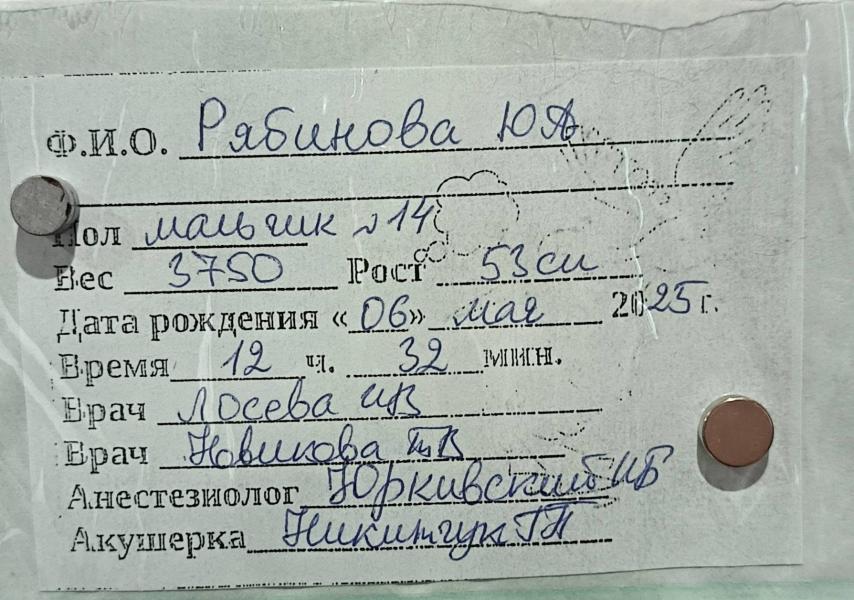 Ф.И.О. Рябинова Ю А
Пол мальчик №14
Вес 3750 Рост 53 см
Дата рождения «06» мая 2025 г.
Время 12 ч. 32 мин.
Врач Лосева ИВ
Врач Новикова ТВ
Анестезиолог Юркивский ИБ
Акушерка Никитчук ГП